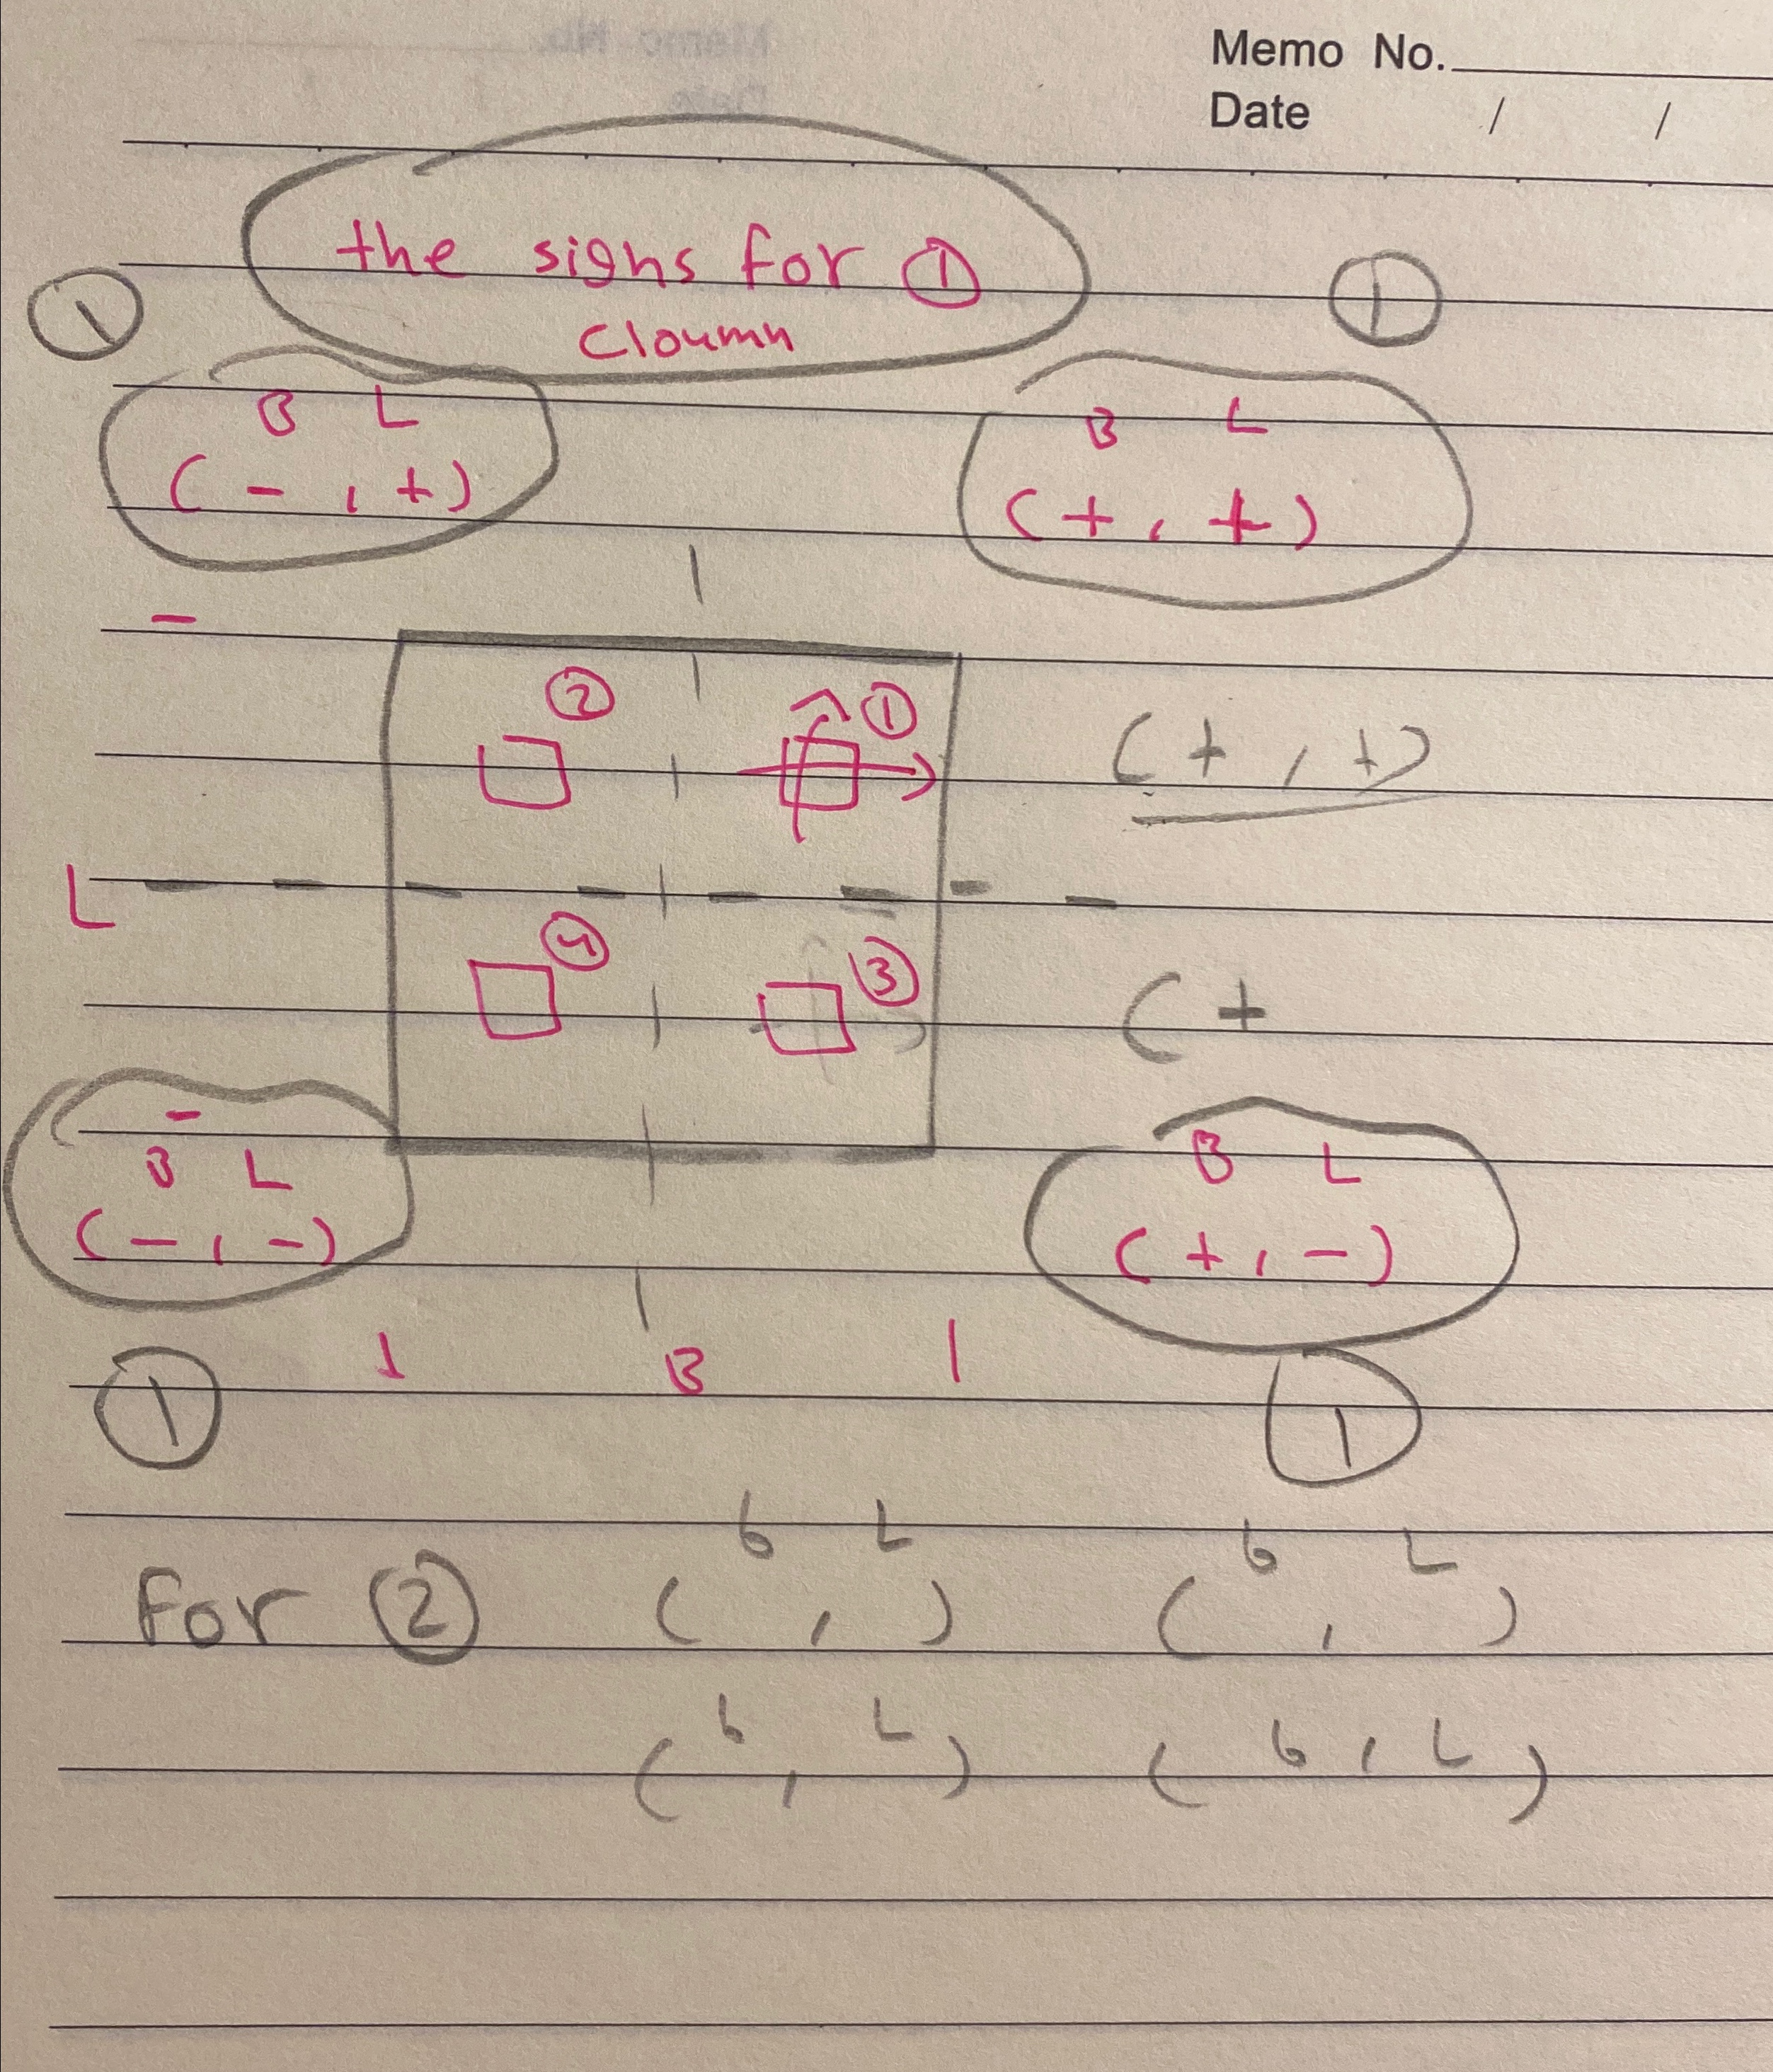 Memo No.
Date / /
the signs for ①
① cloumn ①
B L B L
( - , + ) ( + , + )
-
② ①
( + , + )
L
④ ③
( +
-
B L B L
( - , - ) ( + , - )
1 B 1
① ①
b L b L
For ② ( , ) ( , )
b L
( , ) ( b , L )